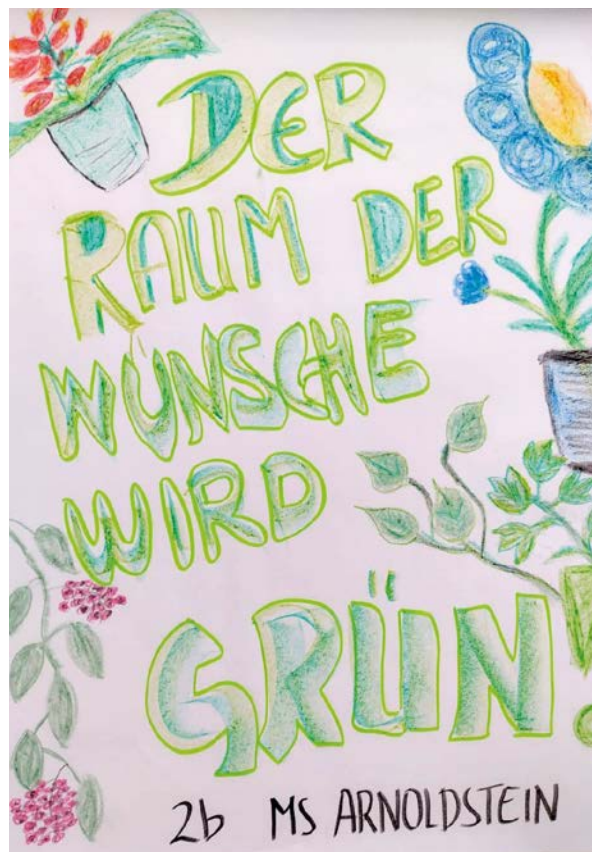 DER
RAUM DER
WÜNSCHE
WIRD
GRÜN!
2b MS ARNOLDSTEIN